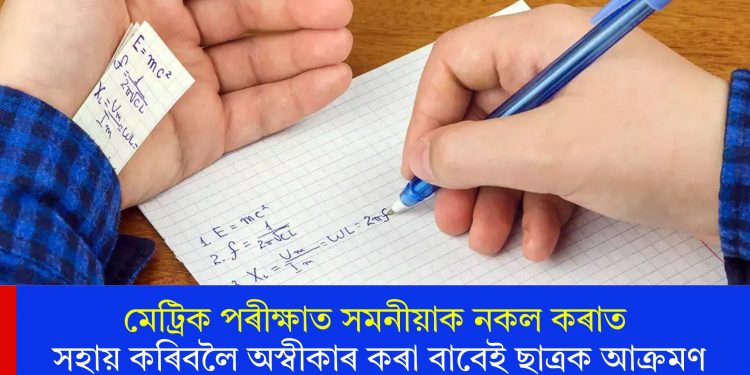 E = mc²
f = 1/2π√CL
X_L = U_m/I_m = ωL =
1. E = mc²
2. f = 1/2π√CL
X_L = U_m/I_m = ωL = 2πf
মেট্ৰিক পৰীক্ষাত সমনীয়াক নকল কৰাত
সহায় কৰিবলৈ অস্বীকাৰ কৰা বাবেই ছাত্ৰক আক্ৰমণ